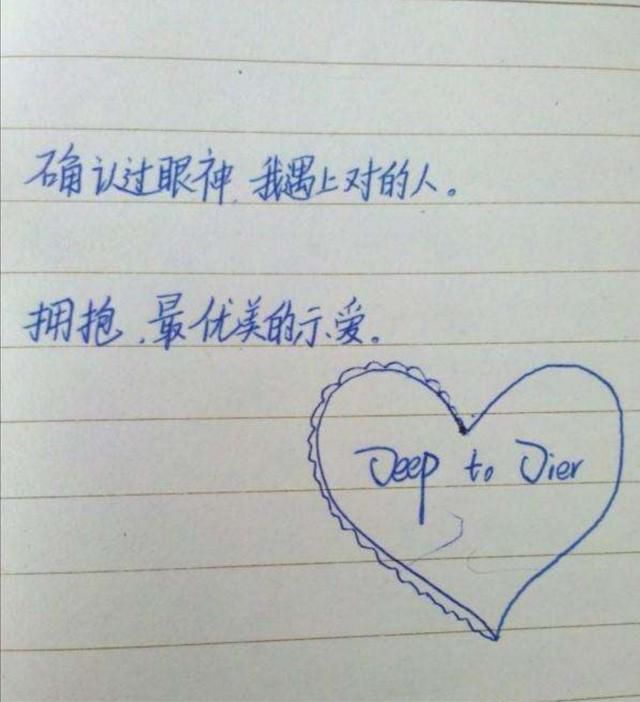 确认过眼神,我遇上对的人。
拥抱,最优美的示爱。
Deep to Dier